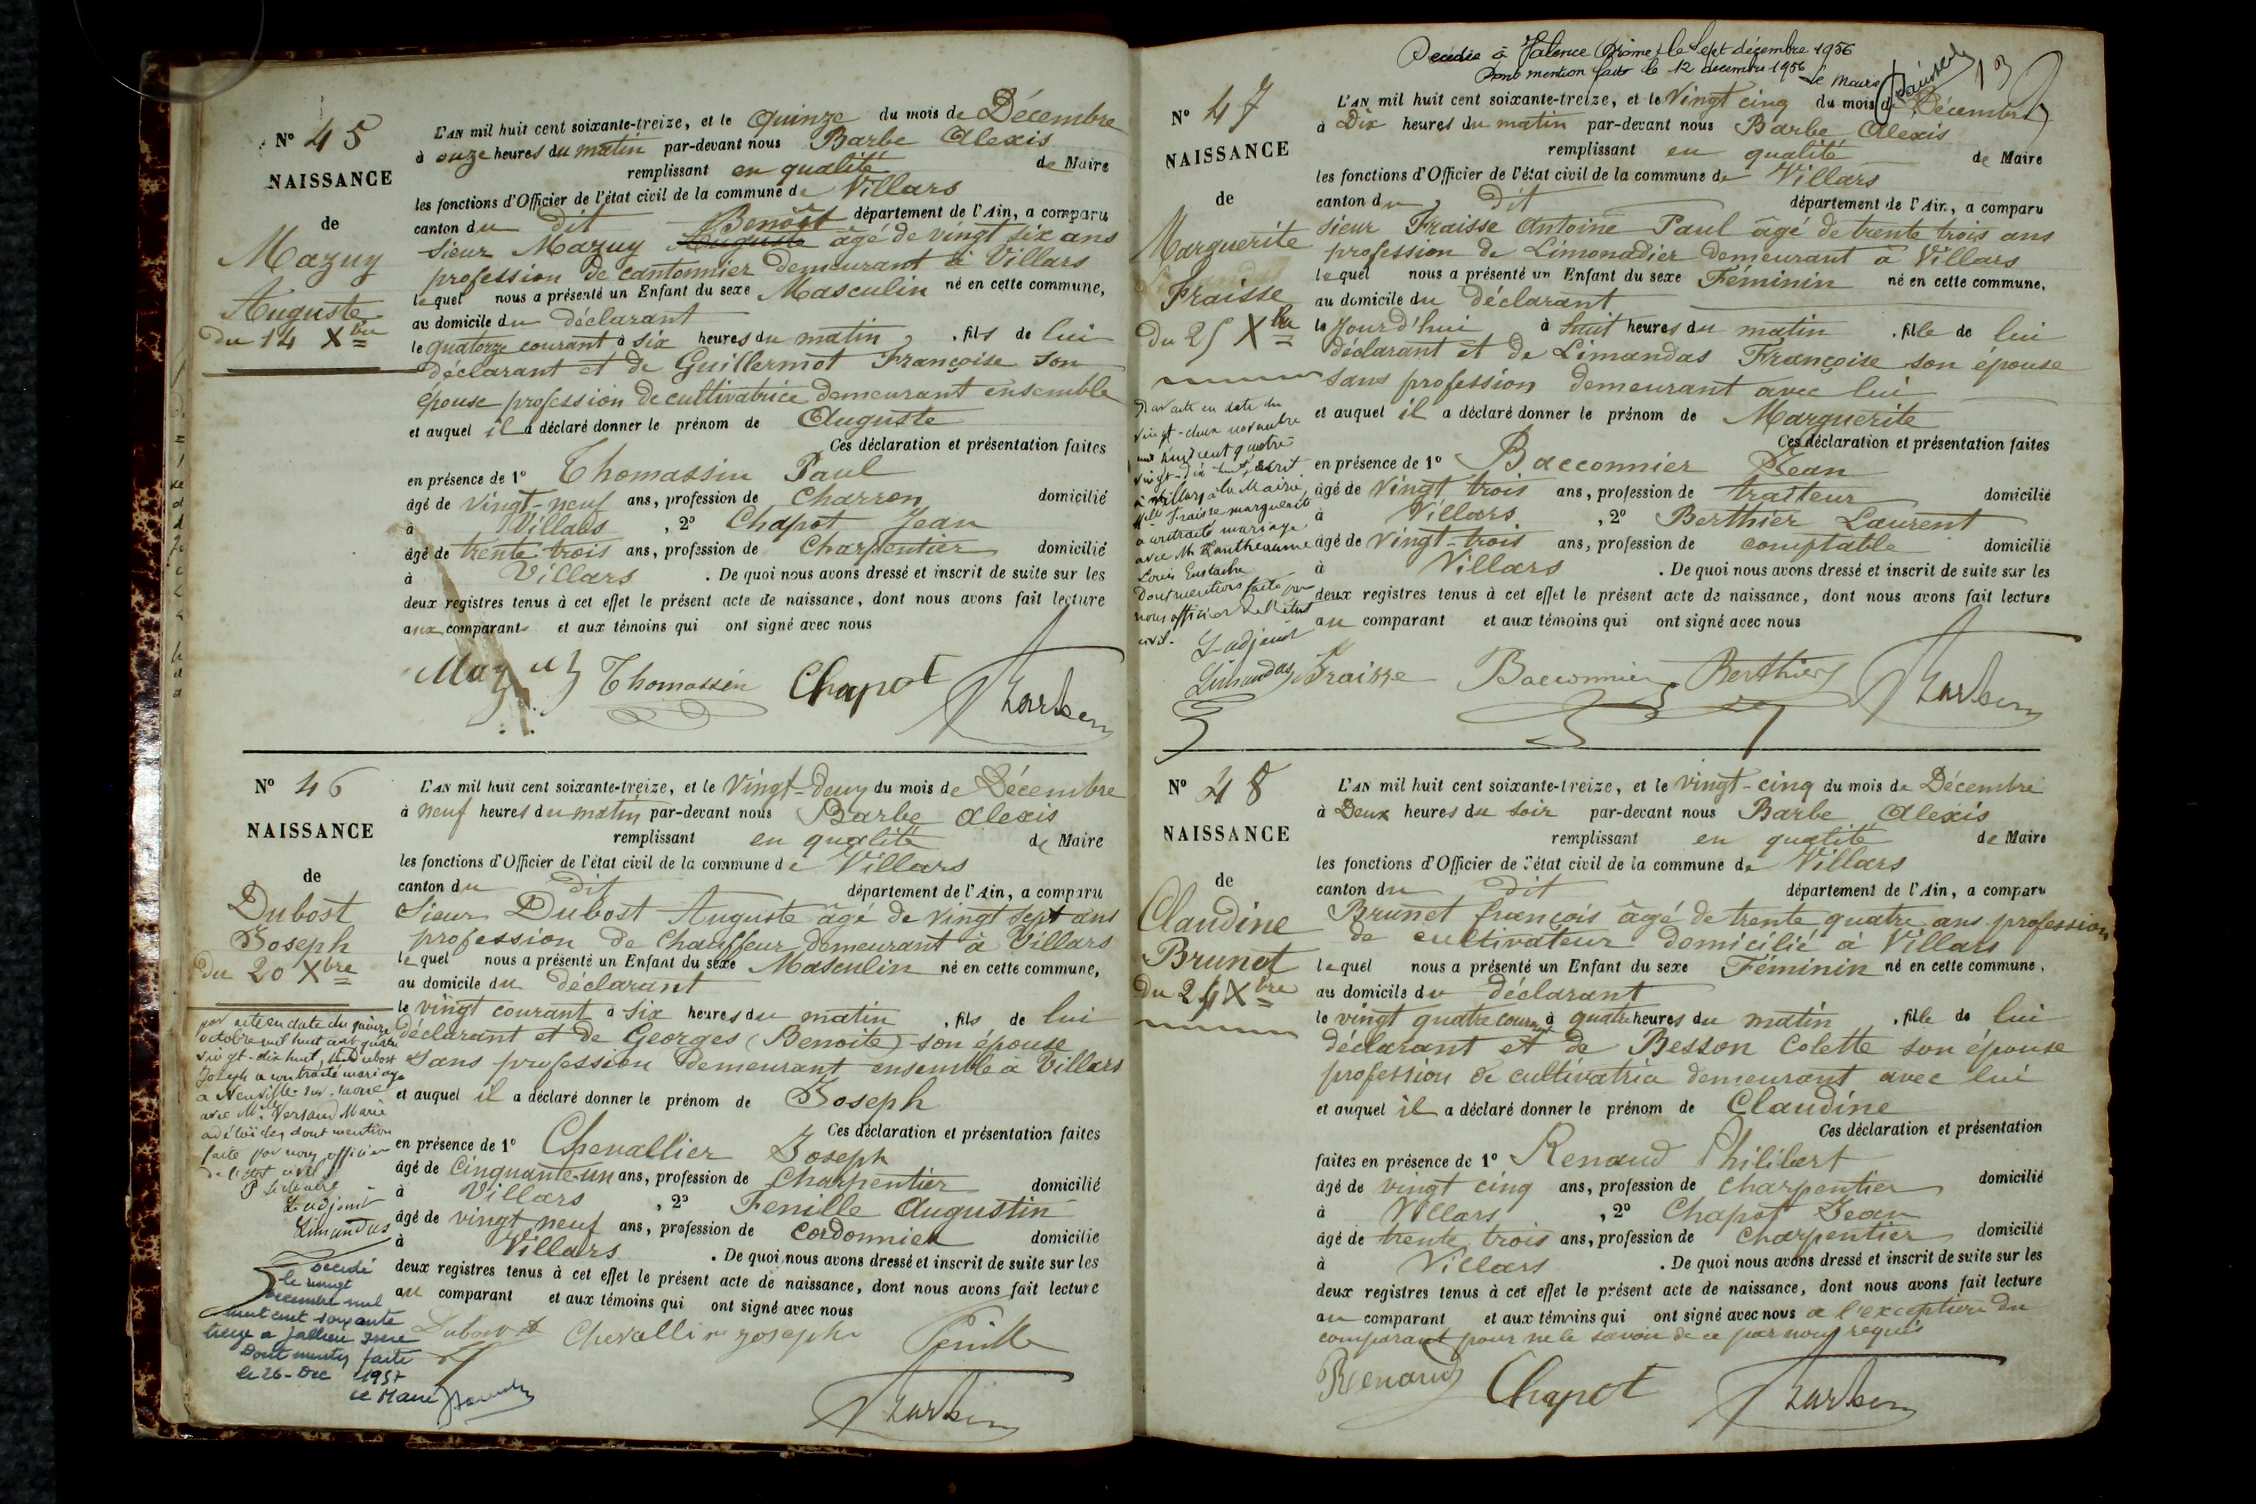 Nº 45
NAISSANCE
de
Mazuy
Auguste
du 14 Xbre
L'AN mil huit cent soixante-treize, et le quinze du mois de Décembre
à onze heures du matin par-devant nous Barbe Alexis
remplissant en qualité de Maire
les fonctions d'Officier de l'état civil de la commune de Villars
canton du dit département de l'Ain, a comparu
Benoit
Sieur Mazuy Auguste âgé de vingt six ans
profession de cantonnier demeurant à Villars
lequel nous a présenté un Enfant du sexe Masculin né en cette commune,
au domicile du déclarant
le quatorze courant à six heures du matin, fils de lui
déclarant et de Guillermot Françoise son
épouse profession de cultivatrice demeurant ensemble
et auquel il a déclaré donner le prénom de Auguste
Ces déclaration et présentation faites
en présence de 1º Thomassin Paul
âgé de vingt-neuf ans, profession de Charron domicilié
à Villars, 2º Chapot Jean
âgé de trente trois ans, profession de Charpentier domicilié
à Villars. De quoi nous avons dressé et inscrit de suite sur les
deux registres tenus à cet effet le présent acte de naissance, dont nous avons fait lecture
aux comparants et aux témoins qui ont signé avec nous
Mazuy Thomassin Chapot Barbe
Nº 46
NAISSANCE
de
Dubost
Joseph
du 20 Xbre
par acte en date du quinze
octobre mil huit cent quatre
vingt-dix huit, Dubost
Joseph a contracté mariage
a Neuville-sur-Saone
avec Mlle Versaud Marie
adélaïde, dont mention
faite par nous, officier
de l'état civil
L'adjoint
Limandas
Décédé
le vingt
décembre mil
neuf cent soixante
treize a Jallieu Isère
Dont mention faite
le 26-Dec 1957
Le Maire
L'AN mil huit cent soixante-treize, et le Vingt-deux du mois de Décembre
à neuf heures du matin par-devant nous Barbe Alexis
remplissant en qualité de Maire
les fonctions d'Officier de l'état civil de la commune de Villars
canton du dit département de l'Ain, a comparu
Sieur Dubost Auguste âgé de vingt sept ans
profession de Chauffeur demeurant à Villars
lequel nous a présenté un Enfant du sexe Masculin né en cette commune,
au domicile du déclarant
le vingt courant à six heures du matin, fils de lui
déclarant et de Georges (Benoite) son épouse
sans profession demeurant ensemble à Villars
et auquel il a déclaré donner le prénom de Joseph
Ces déclaration et présentation faites
en présence de 1º Chevallier Joseph
âgé de Cinquante-un ans, profession de Charpentier domicilié
à Villars, 2º Fenille Augustin
âgé de vingt neuf ans, profession de Cordonnier domicilié
à Villars. De quoi nous avons dressé et inscrit de suite sur les
deux registres tenus à cet effet le présent acte de naissance, dont nous avons fait lecture
au comparant et aux témoins qui ont signé avec nous
Dubost Chevallier joseph Fenille
Barbe
Décédée à Valence (Drôme) le Sept décembre 1956
Dont mention faite le 12 décembre 1956
Le Maire
13
Nº 47
NAISSANCE
de
Marguerite
Fraisse
Du 25 Xbre
Par acte en date du
vingt-deux novembre
mil huit cent quatre
vingt-dix huit, inscrit
à Villars à la Mairie,
Mlle Fraisse marguerite
a contracté mariage
avec Mr Lantheaume
Louis Eustache
Dont mention faite par
nous officier de l'état
civil.
L'adjoint
Limandas
L'AN mil huit cent soixante-treize, et le Vingt cinq du mois de Décembre
à Dix heures du matin par-devant nous Barbe Alexis
remplissant en qualité de Maire
les fonctions d'Officier de l'état civil de la commune de Villars
canton du dit département de l'Ain, a comparu
sieur Fraisse Antoine Paul âgé de trente trois ans
profession de Limonadier demeurant à Villars
lequel nous a présenté un Enfant du sexe Féminin né en cette commune,
au domicile du déclarant
le Jourd'hui à huit heures du matin, fille de lui
déclarant et de Limandas Françoise son épouse
sans profession demeurant avec lui
et auquel il a déclaré donner le prénom de Marguerite
Ces déclaration et présentation faites
en présence de 1º Bacconnier Jean
âgé de Vingt trois ans, profession de traiteur domicilié
à Villars, 2º Berthier Laurent
âgé de Vingt-trois ans, profession de comptable domicilié
à Villars. De quoi nous avons dressé et inscrit de suite sur les
deux registres tenus à cet effet le présent acte de naissance, dont nous avons fait lecture
au comparant et aux témoins qui ont signé avec nous
Fraisse Bacconnier Berthier Barbe
Nº 48
NAISSANCE
de
Claudine
Brunet
Du 24 Xbre
L'AN mil huit cent soixante-treize, et le vingt-cinq du mois de Décembre
à Deux heures du soir par-devant nous Barbe Alexis
remplissant en qualité de Maire
les fonctions d'Officier de l'état civil de la commune de Villars
canton du dit département de l'Ain, a comparu
Brunet françois âgé de trente quatre ans profession
de cultivateur domicilié à Villars
lequel nous a présenté un Enfant du sexe Féminin né en cette commune,
au domicile du déclarant
le vingt quatre courant à quatre heures du matin, fille de lui
déclarant et de Besson Colette son épouse
profession de cultivatrice demeurant avec lui
et auquel il a déclaré donner le prénom de Claudine
Ces déclaration et présentation
faites en présence de 1º Renaud Philibert
âgé de vingt cinq ans, profession de Charpentier domicilié
à Villars, 2º Chapot Jean
âgé de trente trois ans, profession de Charpentier domicilié
à Villars. De quoi nous avons dressé et inscrit de suite sur les
deux registres tenus à cet effet le présent acte de naissance, dont nous avons fait lecture
au comparant et aux témoins qui ont signé avec nous a l'exception du
comparant pour ne le savoir de ce par nous requis
Renaud Chapot Barbe